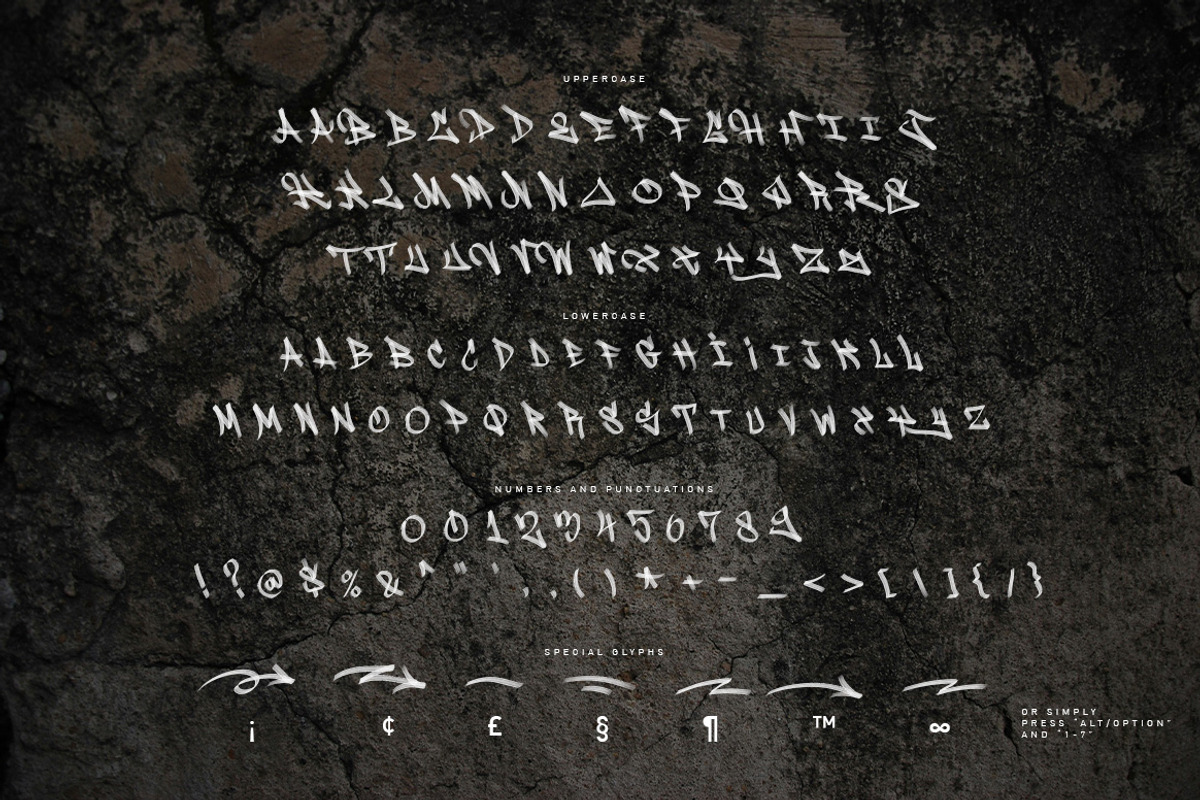 UPPERCASE
A A B B C D D E E F F G H H I I J
K K L M M N N O O P Q Q R R S
T T U U V V W W X X Y Y Z Z
LOWERCASE
A A B B C C D D E F G H I I I J K L L
M M N N O O P Q R R S S T T U V W X Y Y Z
NUMBERS AND PUNCTUATIONS
0 0 1 2 3 4 5 6 7 8 9
! ? @ $ % & ^ " ' , . ( ) * + - _ < > [ \ ] { / }
SPECIAL GLYPHS
¡ ¢ £ § ¶ ™ ∞
OR SIMPLY
PRESS "ALT/OPTION"
AND "1-7"